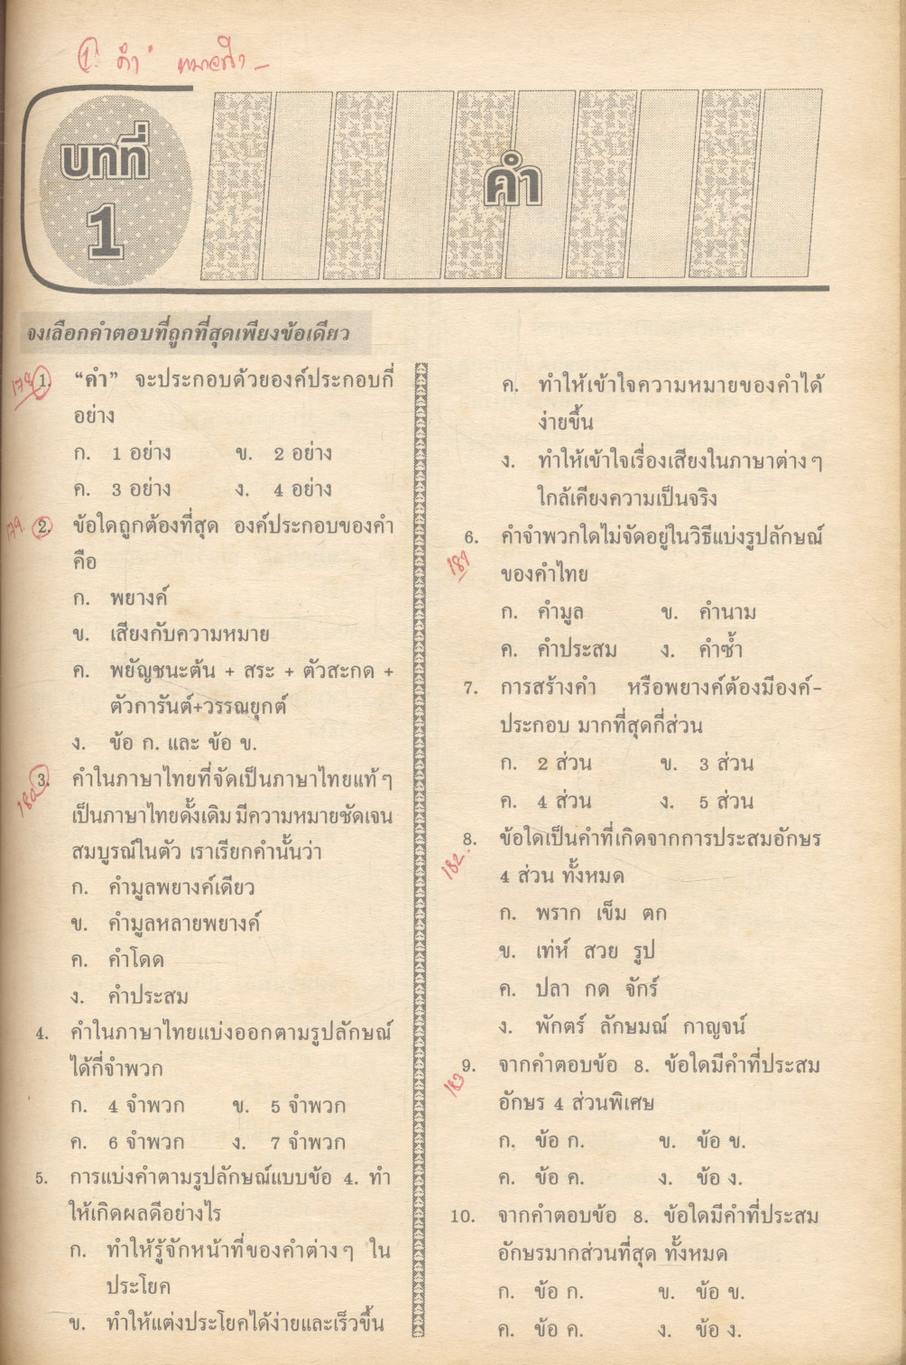 ① คำ
บทที่
1
คำ
จงเลือกคำตอบที่ถูกที่สุดเพียงข้อเดียว
1. “คำ” จะประกอบด้วยองค์ประกอบกี่
อย่าง
ก. 1 อย่าง ข. 2 อย่าง
ค. 3 อย่าง ง. 4 อย่าง
179 2. ข้อใดถูกต้องที่สุด องค์ประกอบของคำ
คือ
ก. พยางค์
ข. เสียงกับความหมาย
ค. พยัญชนะต้น + สระ + ตัวสะกด +
ตัวการันต์+วรรณยุกต์
ง. ข้อ ก. และ ข้อ ข.
180 3. คำในภาษาไทยที่จัดเป็นภาษาไทยแท้ๆ
เป็นภาษาไทยดั้งเดิม มีความหมายชัดเจน
สมบูรณ์ในตัว เราเรียกคำนั้นว่า
ก. คำมูลพยางค์เดียว
ข. คำมูลหลายพยางค์
ค. คำโดด
ง. คำประสม
4. คำในภาษาไทยแบ่งออกตามรูปลักษณ์
ได้กี่จำพวก
ก. 4 จำพวก ข. 5 จำพวก
ค. 6 จำพวก ง. 7 จำพวก
5. การแบ่งคำตามรูปลักษณ์แบบข้อ 4. ทำ
ให้เกิดผลดีอย่างไร
ก. ทำให้รู้จักหน้าที่ของคำต่างๆ ใน
ประโยค
ข. ทำให้แต่งประโยคได้ง่ายและเร็วขึ้น
ค. ทำให้เข้าใจความหมายของคำได้
ง่ายขึ้น
ง. ทำให้เข้าใจเรื่องเสียงในภาษาต่างๆ
ใกล้เคียงความเป็นจริง
6. คำจำพวกใดไม่จัดอยู่ในวิธีแบ่งรูปลักษณ์
181 ของคำไทย
ก. คำมูล ข. คำนาม
ค. คำประสม ง. คำซ้ำ
7. การสร้างคำ หรือพยางค์ต้องมีองค์-
ประกอบ มากที่สุดกี่ส่วน
ก. 2 ส่วน ข. 3 ส่วน
ค. 4 ส่วน ง. 5 ส่วน
8. ข้อใดเป็นคำที่เกิดจากการประสมอักษร
182. 4 ส่วน ทั้งหมด
ก. พราก เข็ม ตก
ข. เท่ห์ สวย รูป
ค. ปลา กด จักร์
ง. พักตร์ ลักษมณ์ กาญจน์
9. จากคำตอบข้อ 8. ข้อใดมีคำที่ประสม
183 อักษร 4 ส่วนพิเศษ
ก. ข้อ ก. ข. ข้อ ข.
ค. ข้อ ค. ง. ข้อ ง.
10. จากคำตอบข้อ 8. ข้อใดมีคำที่ประสม
อักษรมากส่วนที่สุด ทั้งหมด
ก. ข้อ ก. ข. ข้อ ข.
ค. ข้อ ค. ง. ข้อ ง.